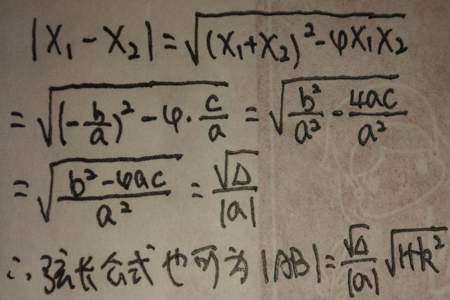 |X₁-X₂|=√((X₁+X₂)²-4X₁X₂)
=√((-b/a)²-4·c/a)=√(b²/a²-4ac/a²)
=√((b²-4ac)/a²)=√Δ/|a|
∴弦长公式也可为|AB|=√Δ/|a| √(1+k²)